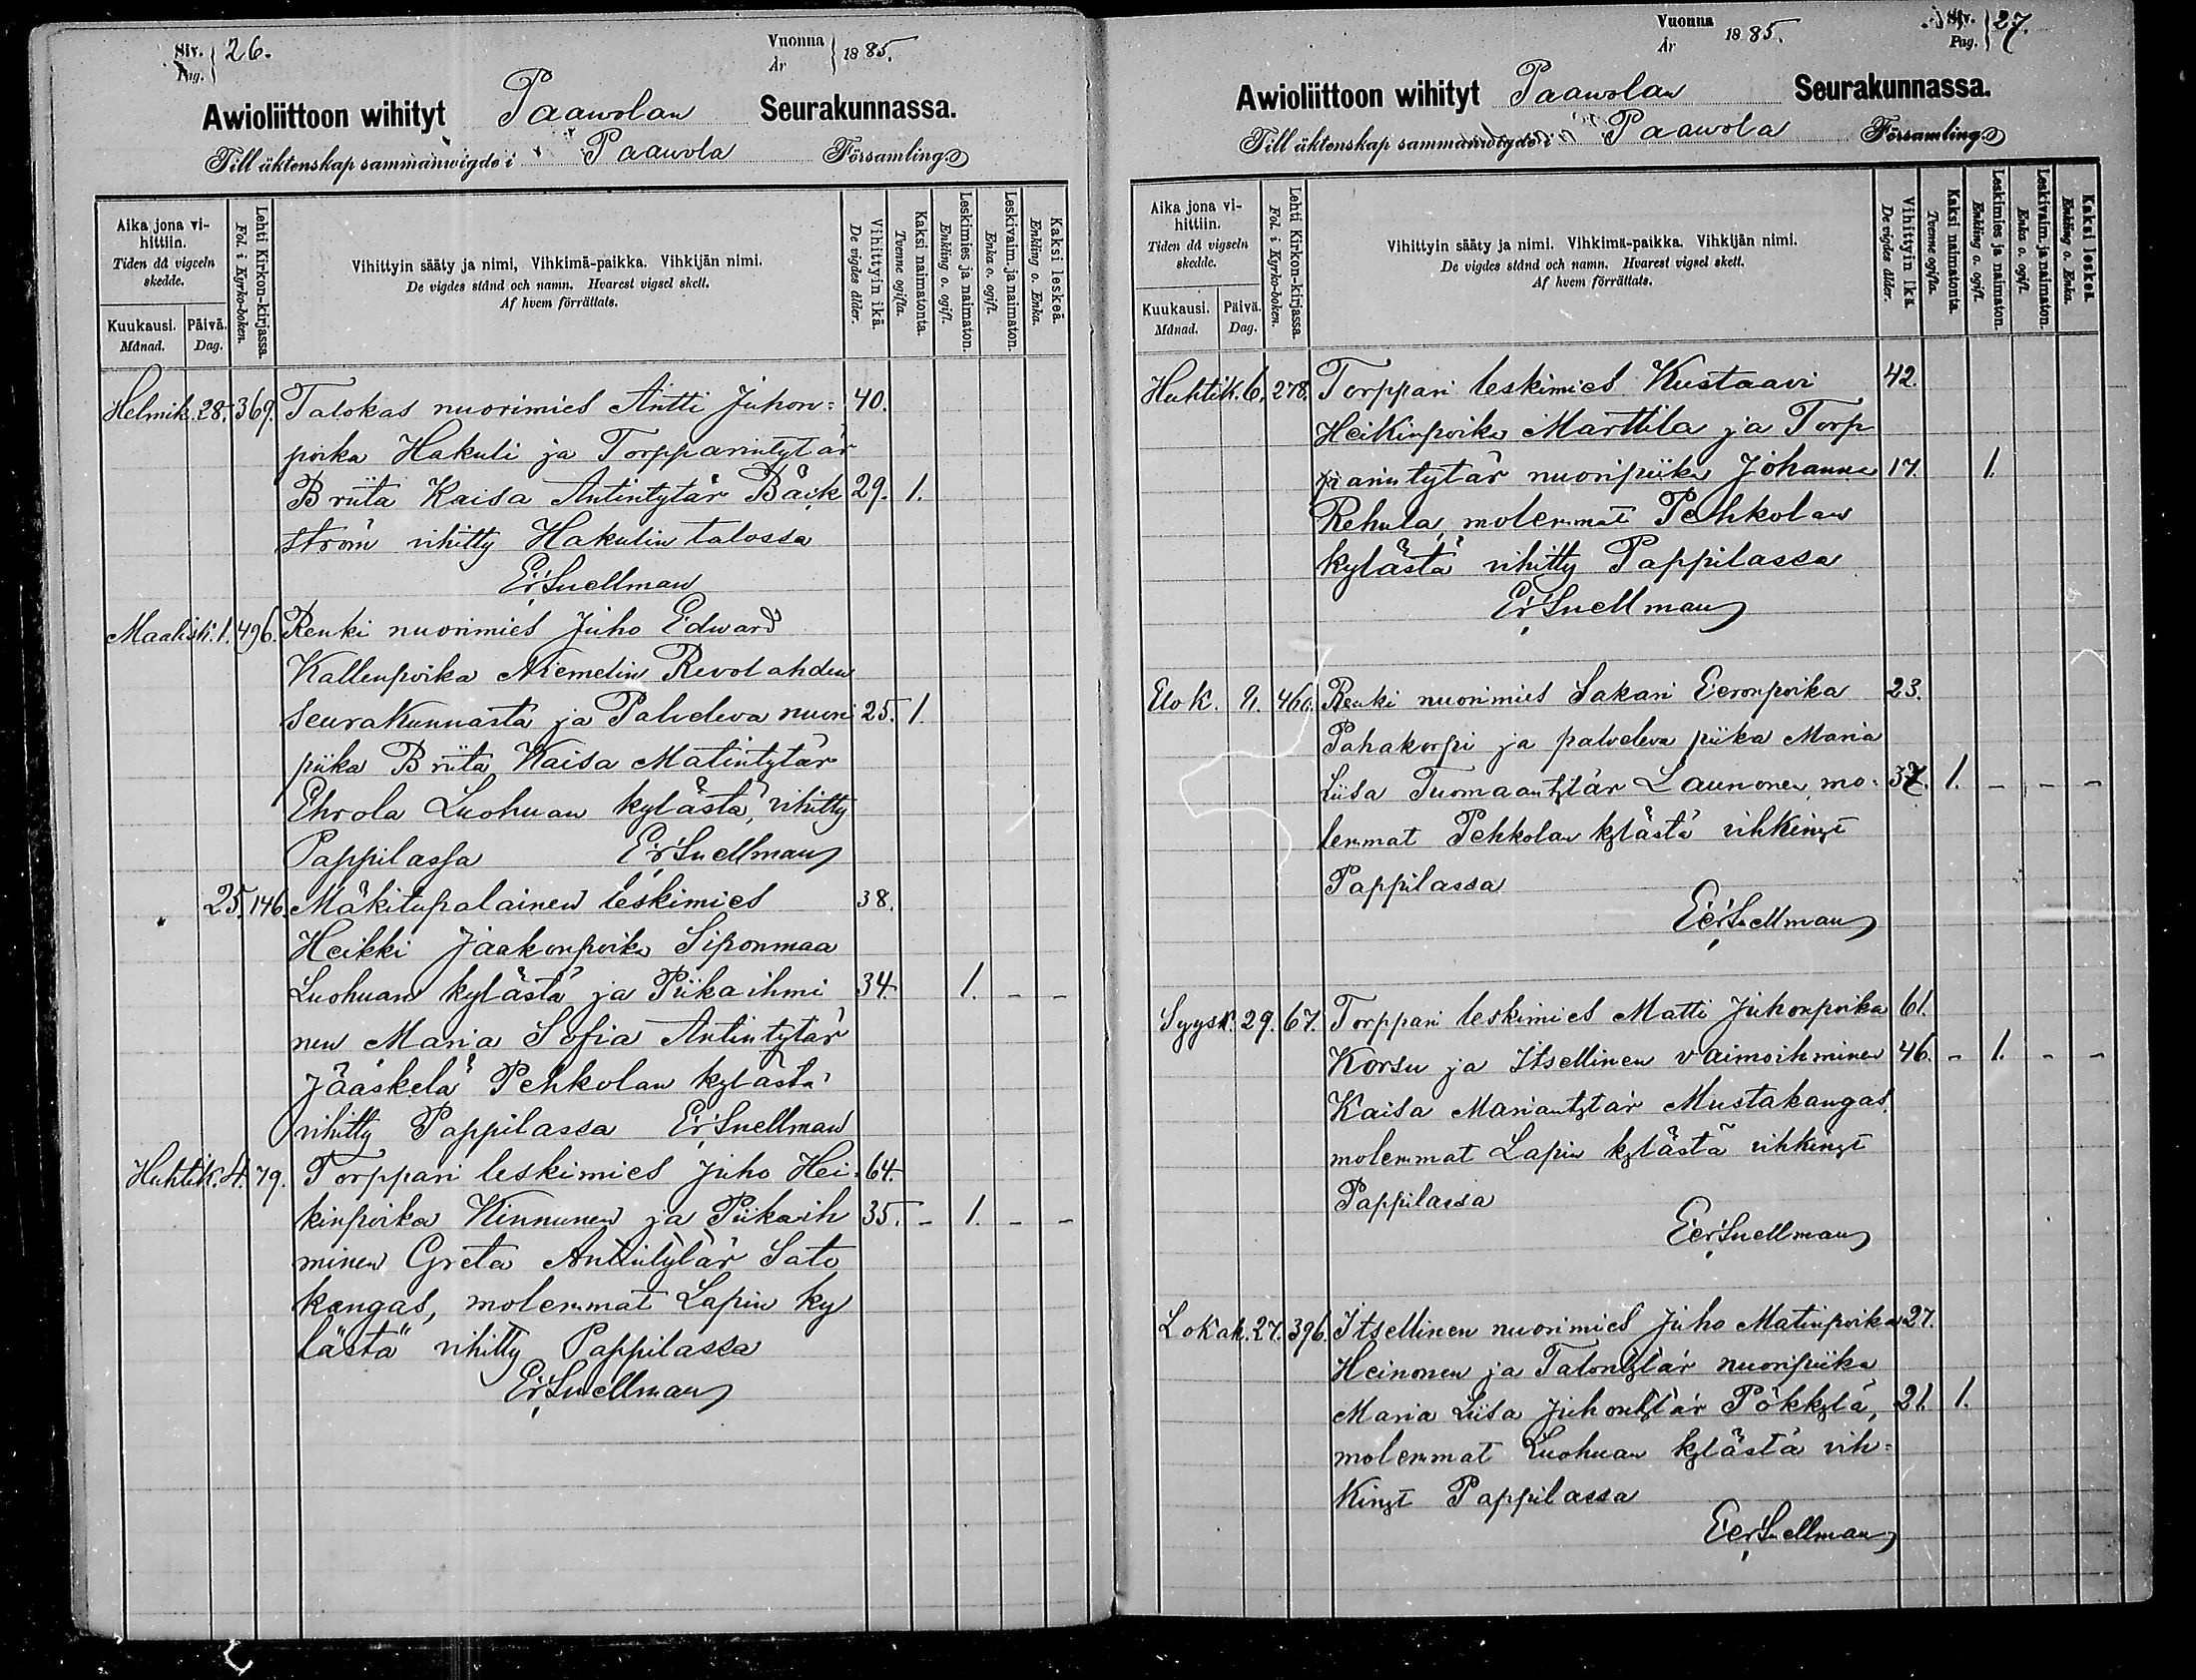 Siv. Pag. 26.
Vuonna År 1885.
Awioliittoon wihityt Paawolan Seurakunnassa.
Till äktenskap sammanwigde i Paavola Församling
Aika jona vihittiin.
Tiden då vigseln skedde.
Kuukausi. Månad.
Päivä. Dag.
Lehti Kirkon-kirjassa.
Fol. i Kyrko-boken.
Vihittyin sääty ja nimi, Vihkimä-paikka. Vihkijän nimi.
De vigdes stånd och namn. Hvarest vigsel skett.
Af hvem förrättats.
Vihittyin ikä.
De vigdes ålder.
Kaksi naimatonta.
Tvenne ogifta.
Leskimies ja naimaton.
Enkling o. ogift.
Leskivaim. ja naimaton.
Enka o. ogift.
Kaksi leskeä.
Enkling o. Enka.
Helmik. 28. 369. Talokas nuorimies Antti Juhon= 40.
poika Hakuli ja Torpparintytär
Briita Kaisa Antintytär Bäck 29. 1.
ström vihitty Hakulin talossa
Er. Snellman
Maalisk. 1. 496. Renki nuorimies Juho Edward
Kallenpoika Niemelin Revolahden
Seurakunnasta ja Palveleva nuori 25. 1.
piika Briita Kaisa Matintytär
Ehrola Luohuan kylästä, vihitty
Pappilassa Er. Snellman
" 25. 146. Mäkitupalainen leskimies 38.
Heikki Jaakonpoika Siponmaa
Luohuan kylästä ja Piikaihmi 34. 1. - -
nen Maria Sofia Antintytär
Jääskelä Pehkolan kylästä
vihitty Pappilassa Er. Snellman
Huhtik. 4. 79. Torppari leskimies Juho Hei= 64.
kinpoika Kinnunen ja Piikaih 35. - 1. - -
minen Greta Antintytär Sato
kangas, molemmat Lapin ky
lästä vihitty Pappilassa
Er. Snellman
Siv. Pag. 27.
Vuonna År 1885.
Awioliittoon wihityt Paawolan Seurakunnassa.
Till äktenskap sammanwigde i Paawola Församling
Aika jona vihittiin.
Tiden då vigseln skedde.
Kuukausi. Månad.
Päivä. Dag.
Lehti Kirkon-kirjassa.
Fol. i Kyrko-boken.
Vihittyin sääty ja nimi. Vihkimä-paikka. Vihkijän nimi.
De vigdes stånd och namn. Hvarest vigsel skett.
Af hvem förrättats.
Vihittyin ikä.
De vigdes ålder.
Kaksi naimatonta.
Tvenne ogifta.
Leskimies ja naimaton.
Enkling o. ogift.
Leskivaim. ja naimaton.
Enka o. ogift.
Kaksi leskeä.
Enkling o. Enka.
Huhtik. 6. 278. Torppari leskimies Kustaavi 42.
Heikinpoika Marttila ja Torp
parintytär nuoripiika Johanna 17. 1.
Rehula, molemmat Pehkolan
kylästä vihitty Pappilassa
Er. Snellman
Elok. 460. Renki nuorimies Sakari Eeronpoika 23.
Pahakorpi ja palveleva piika Maria
Liisa Tuomaantytär Launonen, mo= 1. - - -
lemmat Pehkolan kylästä vihkinyt
Pappilassa
Eer. Snellman
Syysk. 29. 67. Torppari leskimies Matti Juhonpoika 61.
Korsu ja Itsellinen vaimoihminen 46. - 1. - -
Kaisa Mariantytär Mustakangas.
molemmat Lapin kylästä vihkinyt
Pappilassa
Eer. Snellman
Lokak. 27. 396. Itsellinen nuorimies Juho Matinpoika 27.
Heinonen ja Talontytär nuoripiika
Maria Liisa Juhontytär Pökkylä, 21. 1.
molemmat Luohuan kylästä vih=
kinyt Pappilassa
Eer. Snellman